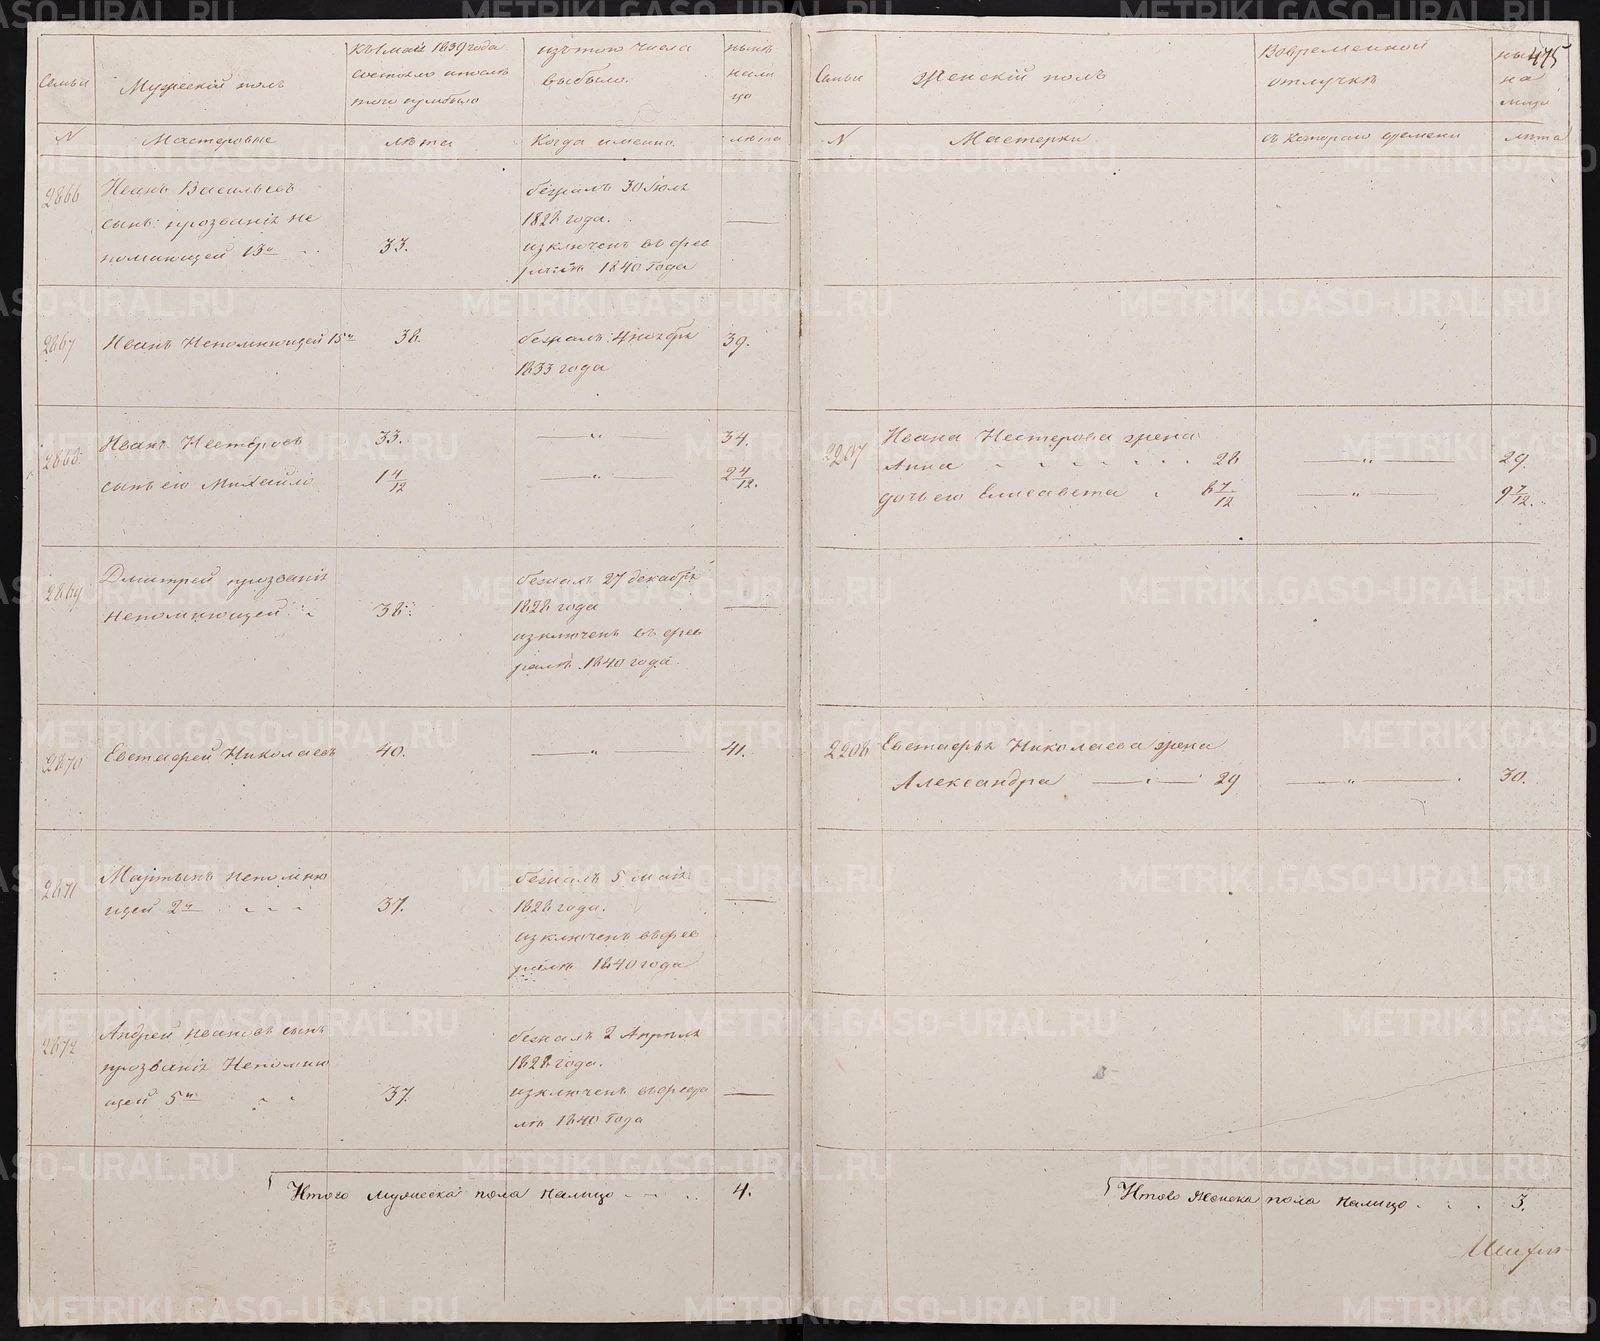 Семьи
Мужескій полъ
Къ 1 маія 1839 года
состояло и послѣ
того прибыло
изъ того числа
выбыло.
нынѣ
нали
цо
N
Мастеровые
лѣта
Когда именно.
лѣта
2866
Иванъ Васильевъ
сынъ прозваніе не
помнющей 13й
33.
бежалъ 30 Іюля
1828 года.
изключенъ въ фев
ралѣ 1840 года
—
2867
Иванъ Непомнющей 15й
38.
бежалъ 4 ноября
1833 года
39.
2868
Иванъ Нестеровъ
33.
— „
34.
сынъ его Михайло
1 4/12
— „ —
2 4/12.
2869
Дмитрей прозваніе
Непомнющей
38.
бежалъ 27 декабря
1828 года
изключенъ въ фев
ралѣ 1840 года.
—
2870
Евстафей Николаевъ
40.
— „
41.
2871
Мартынъ непомню
щей 2й
37.
бежалъ 5 маія
1828 года.
изключенъ въ фев
ралѣ 1840 года
—
2872
Андрей Ивановъ сынъ
прозваніе Непомню
щей 5й
37.
бежалъ 2 Апреля
1828 года.
изключенъ въ февра
лѣ 1840 года
—
Итого мужеска пола налицо
4.
475
Семьи
Женскій полъ
Вовременной
отлучкѣ
на
лицо
N
Мастерки
съ котораго времени
лѣта
2207
Ивана Нестерова жена
Анна
28
— „ —
29.
дочь его Елисавета
8 7/12
— „ —
9 7/12.
2208
Евстафья Николаева жена
Александра
29
— „ —
30.
Итово женска пола налицо
3.
METRIKI.GASO-URAL.RU